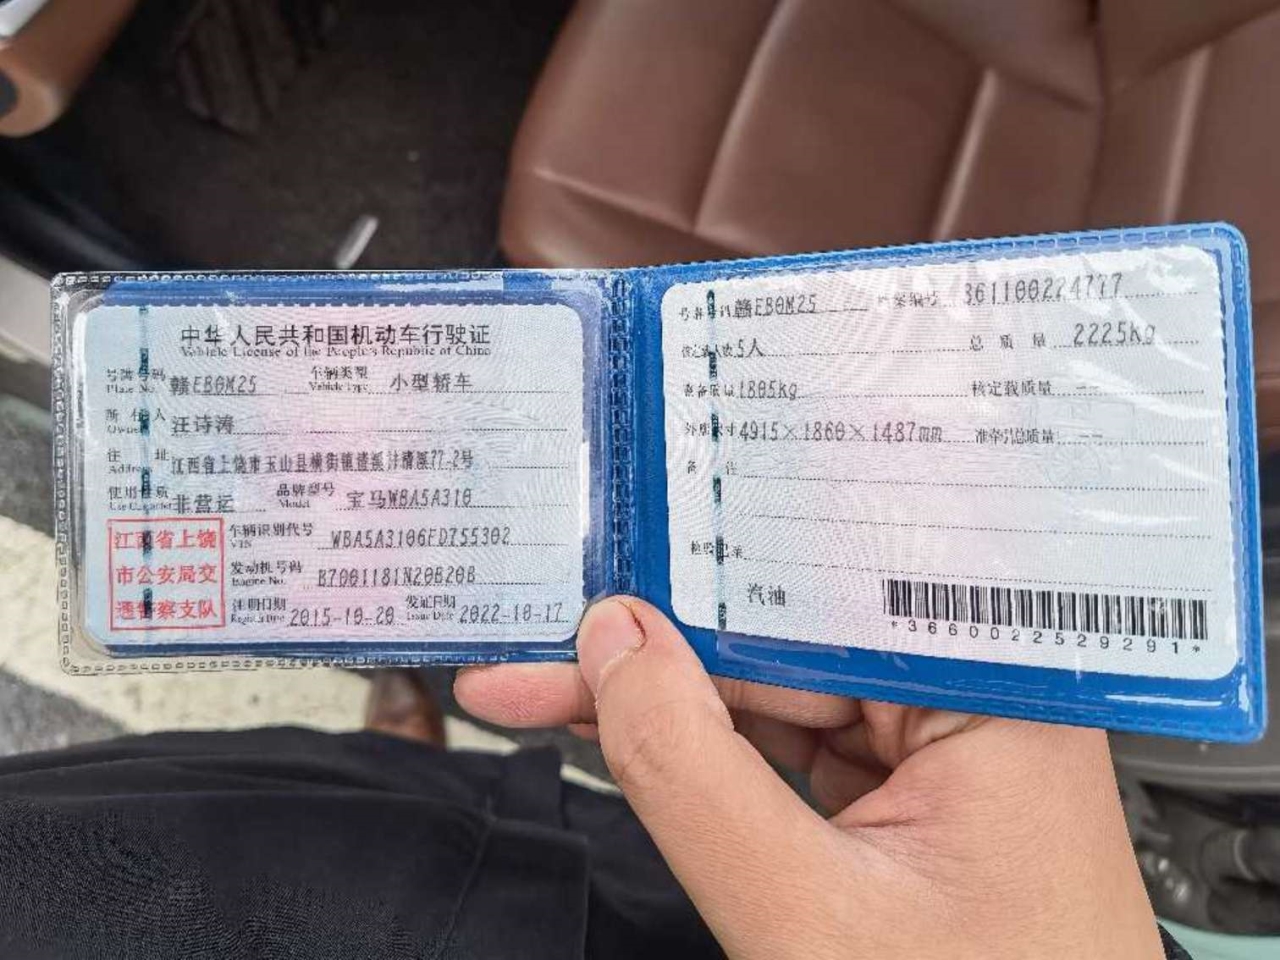 中华人民共和国机动车行驶证
Vehicle License of the People's Republic of China
号牌号码 赣EB0M25 车辆类型 小型轿车
Plate No. Vehicle Type
所有人 汪诗涛
Owner
住址 江西省上饶市玉山县横街镇
Address
使用性质 非营运 品牌型号 宝马WBA5A310
Use Character Model
江西省上饶
市公安局交
通警察支队
车辆识别代号 WBA5A3106FD755302
VIN
发动机号码 B7001181N20B20B
Engine No.
注册日期 2015-10-20 发证日期 2022-10-17
Register Date Issue Date
号牌号码 赣EB0M25 档案编号 361100224777
核定载人数 5人 总质量 2225Kg
整备质量 1805Kg 核定载质量 --
外廓尺寸 4915×1860×1487mm 准牵引总质量 --
备注
检验记录
汽油
*3660022529291*